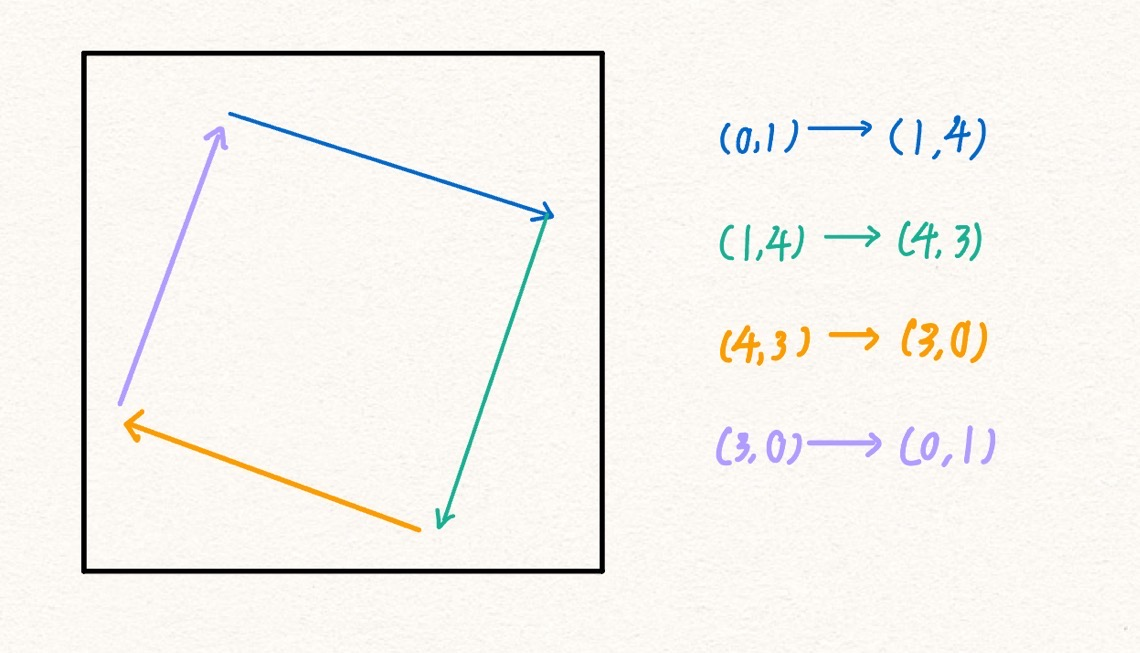 (0,1) → (1,4)
(1,4) → (4,3)
(4,3) → (3,0)
(3,0) → (0,1)